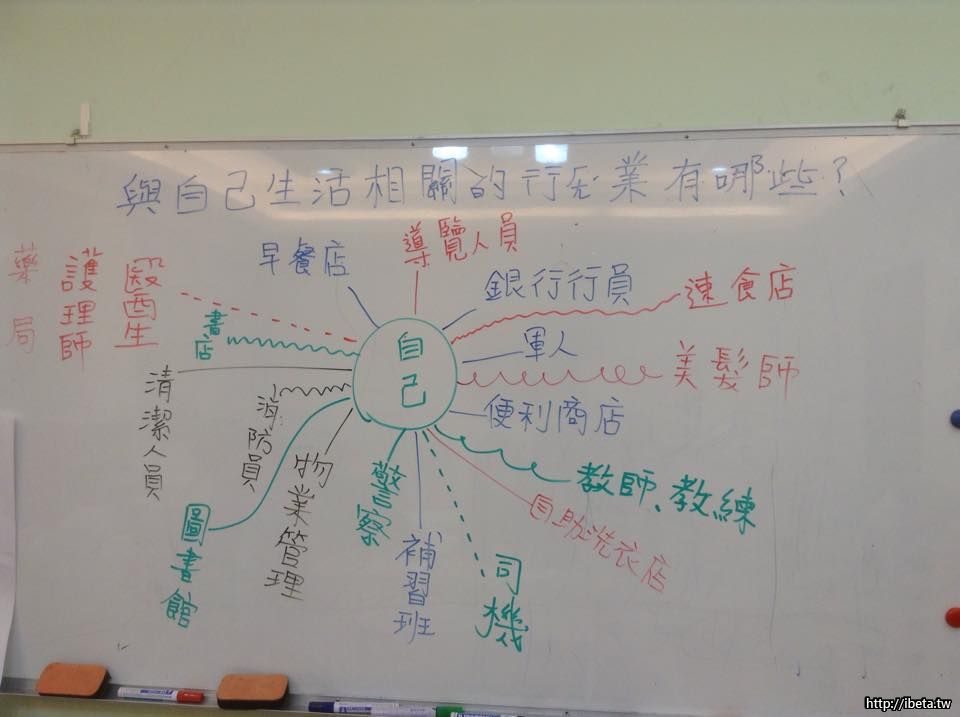 與自己生活相關的行業有哪些?
導覽人員
早餐店
銀行行員
速食店
醫生
護理師
藥局
書店
自己
軍人
美髮師
便利商店
清潔人員
消防員
教師、教練
自助洗衣店
物業管理
警察
圖書館
補習班
司機
http://ibeta.tw